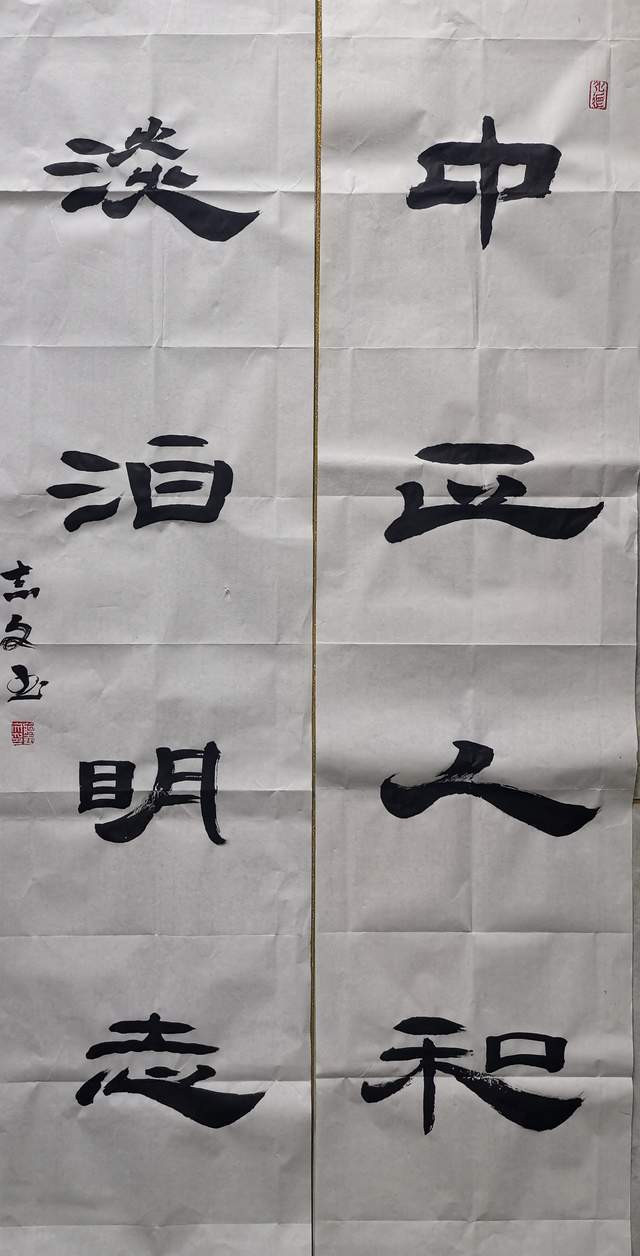 中正人和
淡泊明志
志文书